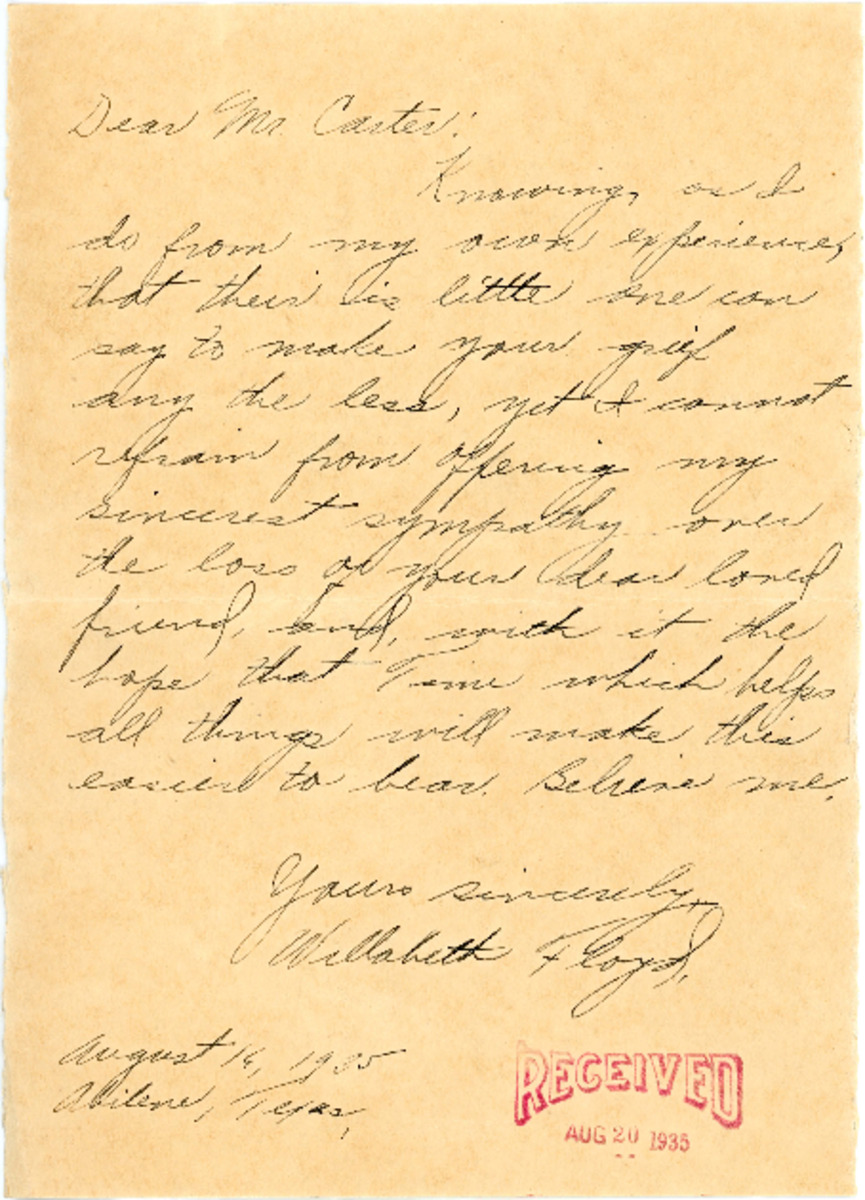 Dear Mr. Carter:
Knowing, as I
do from my own experience,
that their is little one can
say to make your grief
any the less, yet I cannot
refrain from offering my
sincerest sympathy over
the loss of your dear loved
friend, and, with it the
hope that Time which helps
all things will make this
easier to bear. Believe me,
Yours sincerely,
Willabeth Floyd.
August 16, 1935
Abilene, Texas,
RECEIVED
AUG 20 1935